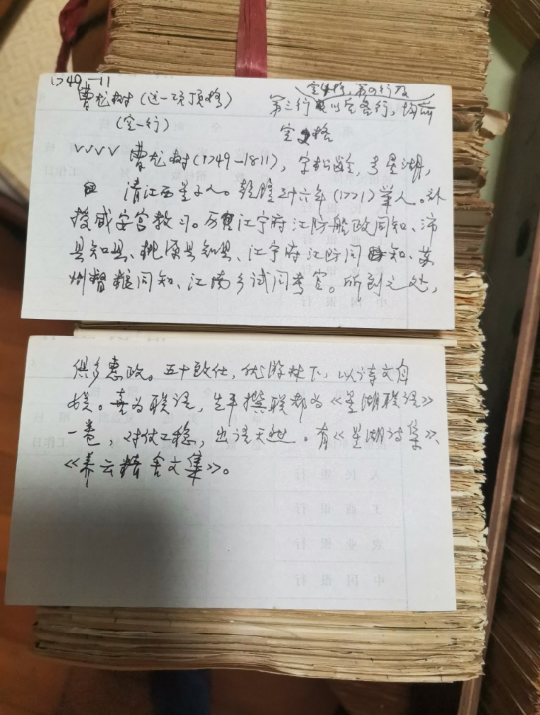 1749-11
曹龙树（这一项顶格）
（空一行）
第三行 以它各行，均前
空 格
VVVV 曹龙树（1749-1811），字松龄，号星湖，
清江西星子人。乾隆三十六年（1771）举人。补
授咸安宫教习。历官江宁府江防船政同知、沛
县知县、桃源县知县、江宁府江防同知、苏
州督粮同知、江南乡试同考官。所到之处，
俱多惠政。五十致仕，优游林下，以诗文自
娱。喜为联语，生平撰联都为《星湖联语》
一卷，对仗工稳，出语天然。有《星湖诗集》、
《养云精舍文集》。
人民银行
工商银行
农业银行
中国银行